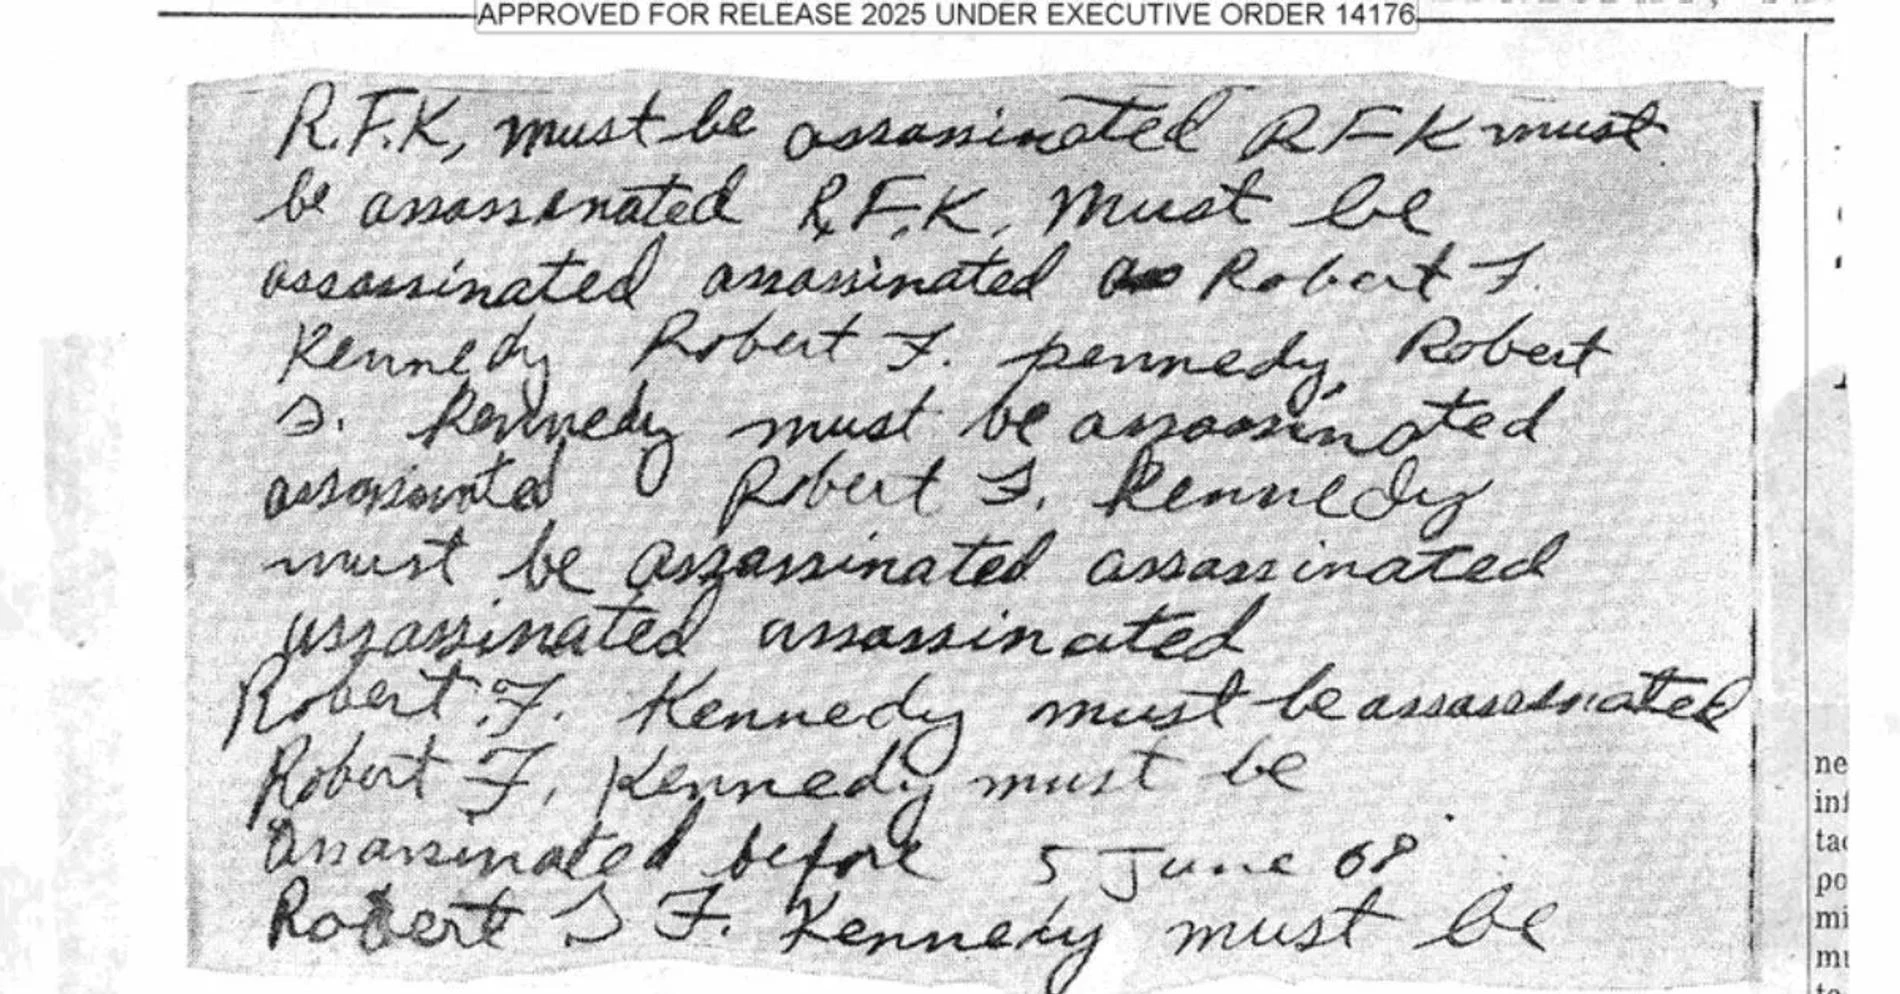 APPROVED FOR RELEASE 2025 UNDER EXECUTIVE ORDER 14176
R.F.K, must be assassinated RFK must
be assassinated R.F.K. Must be
assassinated assassinated Robert F.
Kennedy Robert F. pennedy, Robert
F. Kennedy must be assassinated
Robert F. Kennedy
must be assassinated assassinated
assassinated assassinated
Robert F. Kennedy must be assassinated
Robert F, Kennedy must be
assassinated before 5 June 68
Robert F. Kennedy must be
ne
inf
tac
po
mi
mu